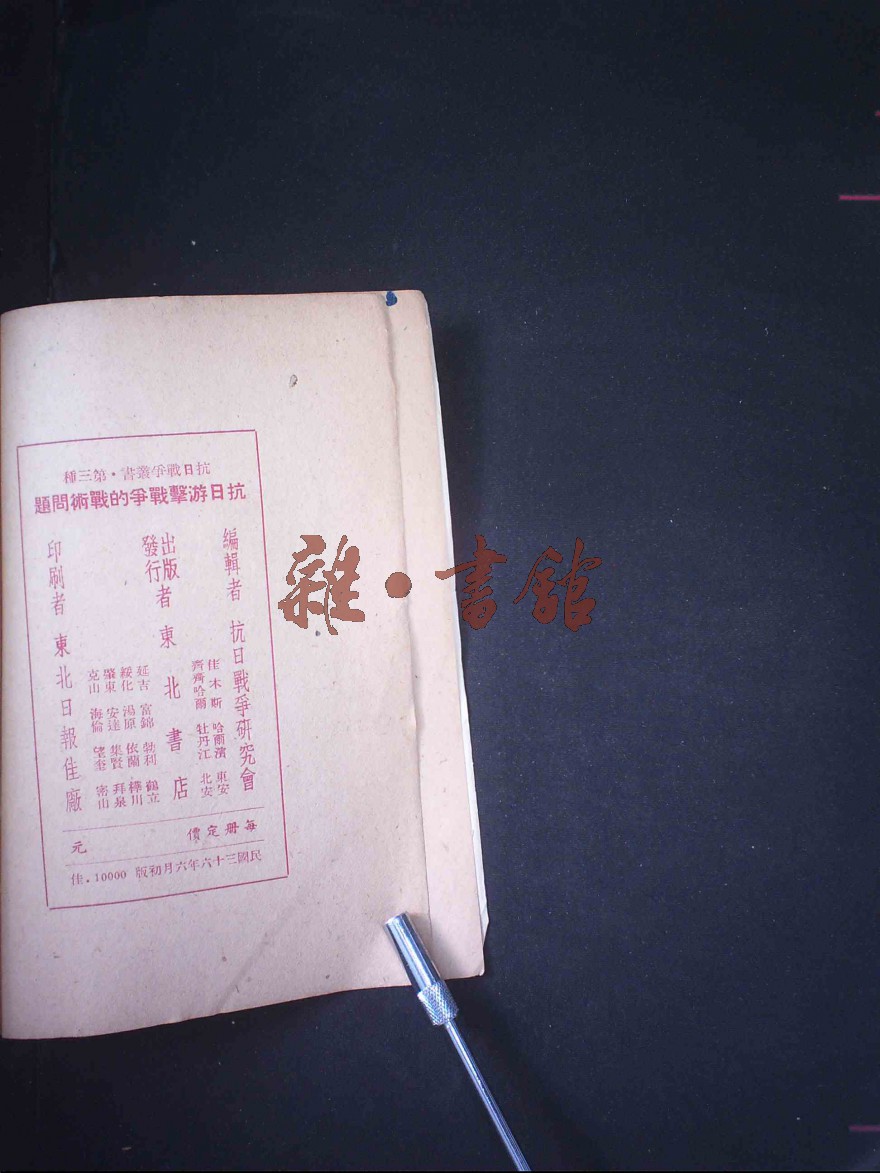 抗日戰爭叢書•第三種
抗日游擊戰爭的戰術問題
編輯者 抗日戰爭硏究會
出版者
發行
東北書店
佳木斯 哈爾濱 東安
齊齊哈爾 牡丹江 北安
延吉 富錦 勃利 鶴立
綏化 湯原 依蘭 樺川
肇東 安達 集賢 拜泉
克山 海倫 望奎 密山
印刷者 東北日報佳廠
每册定價 元
民國三十六年六月初版 10000.佳
雜•書館